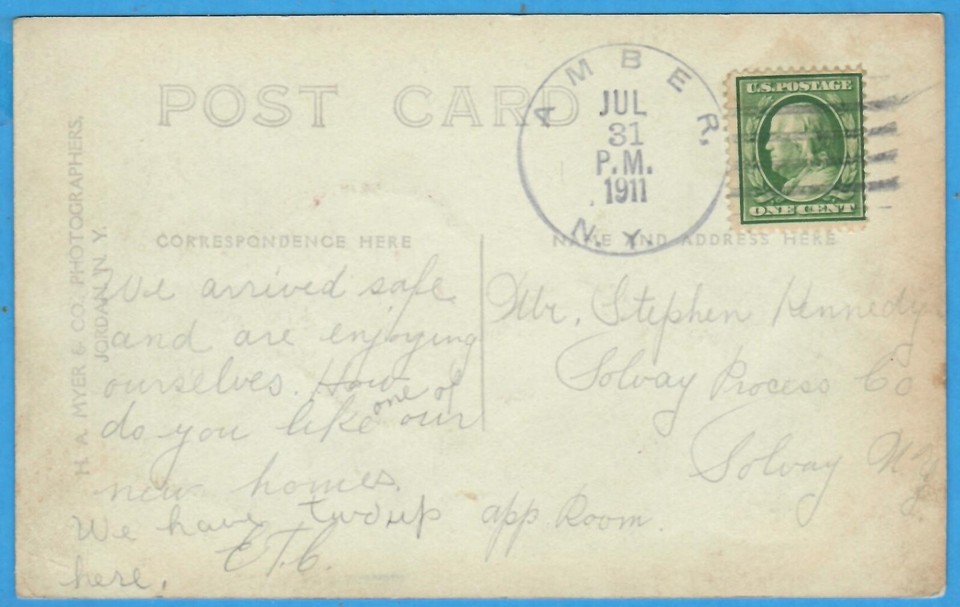 POST CARD
AMBER,
JUL
31
P.M.
1911
N.Y.
U.S. POSTAGE
ONE CENT
H. A. MYER & CO. PHOTOGRAPHERS,
JORDAN, N. Y.
CORRESPONDENCE HERE
NAME AND ADDRESS HERE
We arrived safe
and are enjoying
ourselves. How
do you like one of our
new homes.
We have two up app Room
here.
E.T.C.
Mr. Stephen Kennedy
Solvay Process Co
Solvay N.Y.